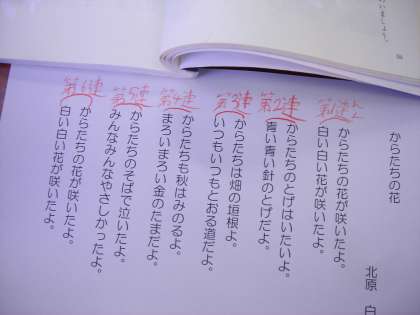 からたちの花
北原 白
第1連
からたちの花が咲いたよ。
白い白い花が咲いたよ。
第2連
からたちのとげはいたいよ。
青い青い針のとげだよ。
第3連
からたちは畑の垣根よ。
いつもいつもとおる道だよ。
第4連
からたちも秋はみのるよ。
まろいまろい金のたまだよ。
第5連
からたちのそばで泣いたよ。
みんなみんなやさしかったよ。
第6連
からたちの花が咲いたよ。
白い白い花が咲いたよ。